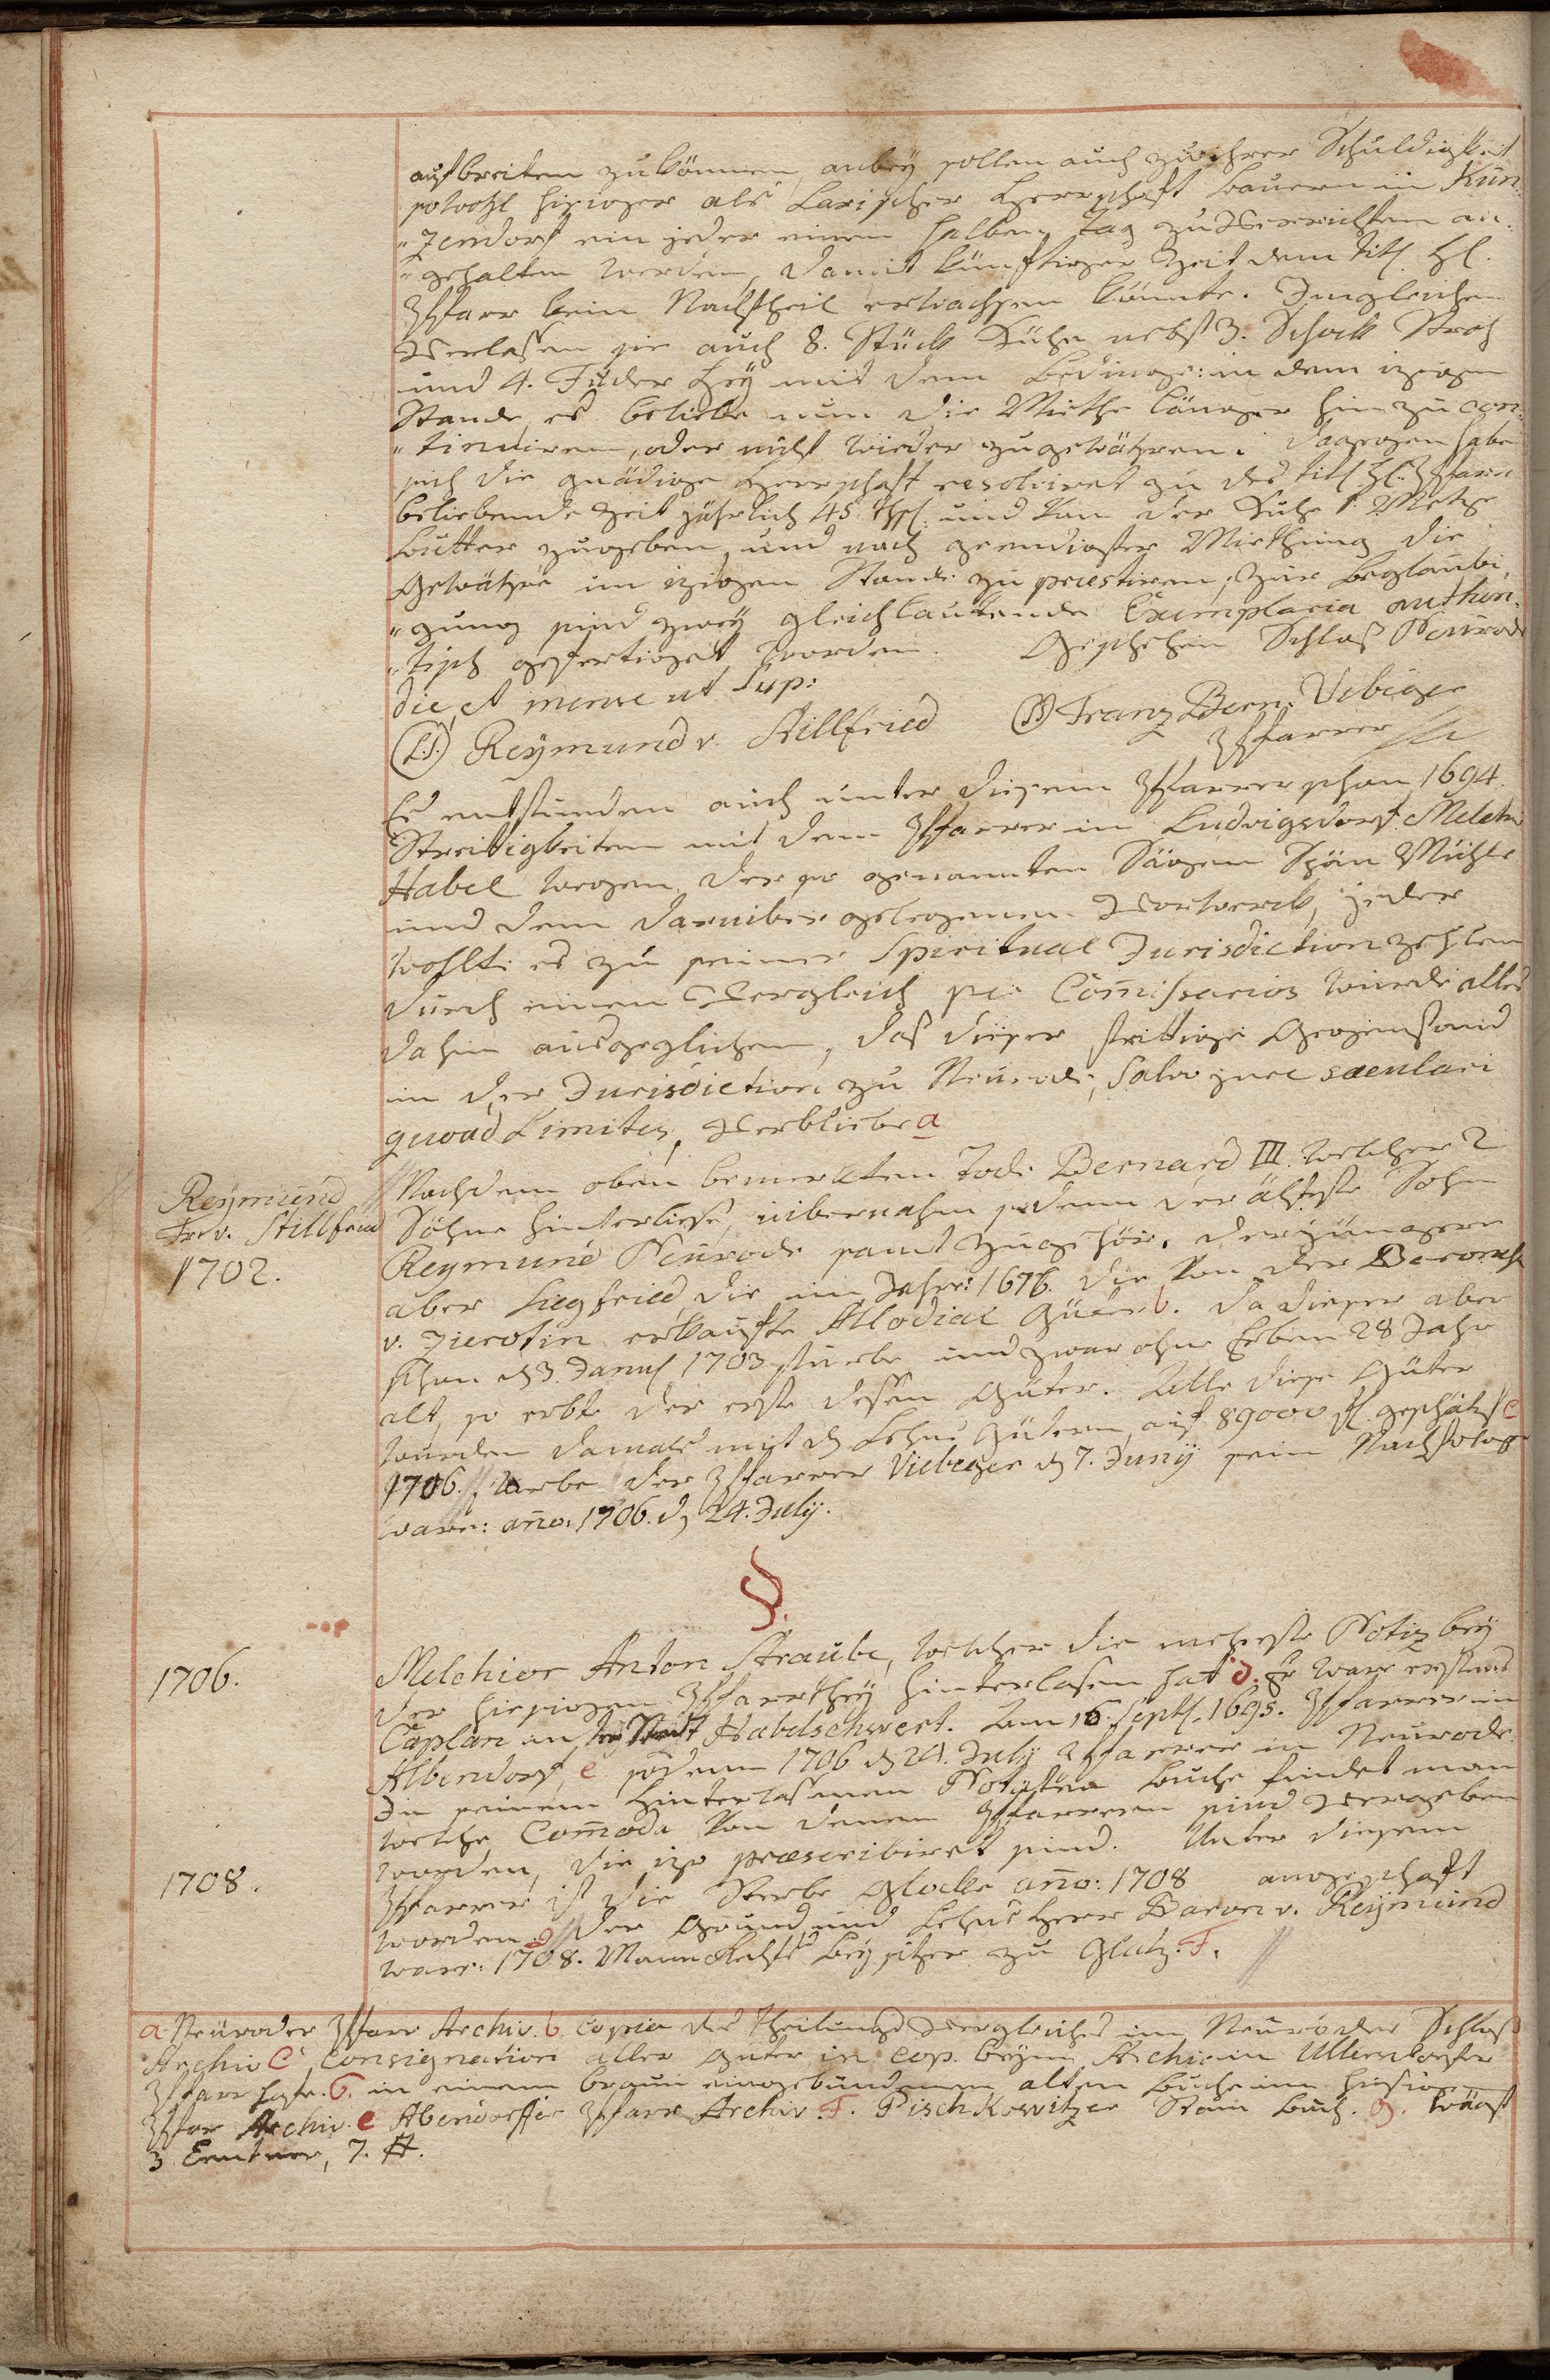 ausbreiten zu können, anbeÿ sollen auch zu ihrer Schuldigkeit
sowohl hisiger als Larischer Herrschaft Bauern in Kun„
„zendorf ein jeder einen halben Tag zu Verrichten an„
„gehalten werden, damit künftiger Zeit dem titl. H.
Pfarr kein Nachtheil erwachsen könnte. Jngleichen
Verlaßen sie auch 8. Stück Kühe nebst 3. Schock Stroh
und 4. Fuder Heÿ mit dem Bedinge: in dem izigen
Stande, es beliebe nun die Miethe länger hin zu con„
„tinuiren, oder nicht wieder zu gewähren. dagegen habe
sich die gnädige Herrschaft resolviret zu des titl. H. Pfarr
beliebende Zeit jährlich 45 thl. und Von der Kuhe 1 Metze
Butter zugeben, und nach geendigter Miethung die
Gewähre im izigen Stande zu præstiren, Zur Beglaubi„
„gung sind zweÿ gleichlautende Exemplaria authen„
„tisch gefertiget worden. Geschehen Schloß Neurode
die et mense ut sup:
(L.S.) Reÿmund v. Stillfried (LS) Franz Bern. Vebiger
Pfarrer
Es entstunden auch unter diesem Pfarrer schon 1694.
Streitigkeiten mit dem Pfarrer in Ludvigsdorf Melchr
Habel wegen der so genannten Sägen Spän Mühle
und dem darüber gelegenen Vorwerck, jeder
wollte es zu seiner Spiritual Jurisdiction zehlen
durch einen Vergleich per Com̄issarios wurde alles
dahin ausgeglichen, daß dieser strittige Gegenstand
in der Jurisdiction zu Neurode, Salvo jure sæculari
quoad Limites, Verbliebe a
Reÿmund
Fr. v. Stillfried
1702.
Nachdem oben bemerkten Tode Bernard III. welcher 2
Söhne hinterließe, übernahm sodenn der älteste Sohn
Reymund Neurode samt Zugehör, der jüngere
aber Siegfried, die im Jahre: 1676. die Von der Baronesse
v. Zierotin erkaufte Allodial Güter b. da dieser aber
schon d 3. Janul 1703 sturbe und zwar ohne Erben 28 Jahr
alt, so erbte der erste dessen Güter. Alle diese Güter
wurden damals mit d Lehns Gütern auf 89000 fl. geschätzt c
1706. starbe der Pfarrer Viebiger d 7. Junÿ sein Nachfolger
ware: año. 1706. d. 24. Julÿ.
§.
1706.
Melchior Anton Straube, welcher die mehreste Notiz beÿ
der hiesigen Pfarrtheÿ hinterlaßen hat d. Er ware erstens
Caplan in der Stadt Habelschwert. Dann 16. Septl. 1695. Pfarrer in
Albendorf, e sodenn 1706 d 24. Julÿ Pfarrer in Neurode.
Jn seinem hinterlaßenen Notaten Buche findet man
welche Com̄oda Von denen Pfarrern sind Vergeben
worden, die izo præscribiret sind. Unter diesem
1708.
Pfarrer ist die Sterbe Glocke año: 1708 angeschaft
worden. g Der Grund und Lehns Herr Baron v. Reÿmund
ware: 1708. Mannrechts Beÿsitzer zu Glatz. F.
a Neuroder Pfarr Archiv. b. Copia des Theilungs Vergleiches im Neuroder Schloß
Archiv c Consignation aller Güter in Cop. beÿm Archiv in Ullersdorfer
in einem braun eingebundenen alten Buche im hiesigen
Pfar Archiv. e Abendorffer Pfarr Archiv. F. Pischkowitzer Stam Buch. g. wägt
3 Centner, 7. ℔.